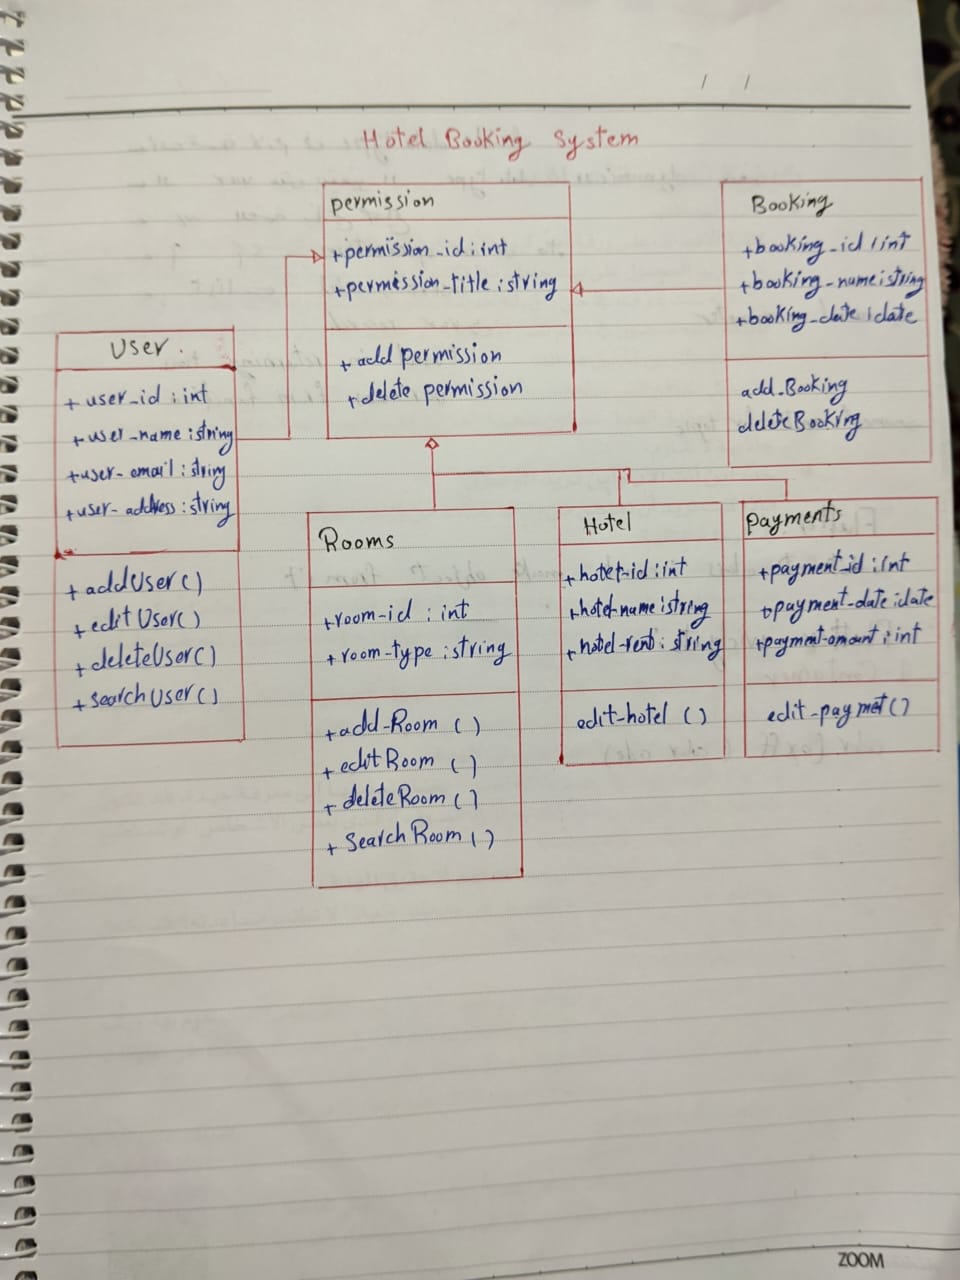 / /
Hotel Booking System
permission
+permission_id : int
+permission_title : string
+ add permission
+ delete permission
Booking
+booking_id : int
+booking_name : string
+booking_date : date
add_Booking
deleteBooking
User.
+ user_id : int
+user_name : string
+user_email : string
+user_address : string
+ addUser()
+ editUser()
+ deleteUser()
+ searchUser()
Rooms
+room-id : int
+room-type : string
+add-Room ()
+ editRoom ()
+ deleteRoom ()
+ SearchRoom ()
Hotel
+hotel-id : int
+hotel-name : string
+hotel-rent : string
edit-hotel ()
payments
+payment-id : int
+payment-date : date
+paymnt-amount : int
edit-paymet()
ZOOM